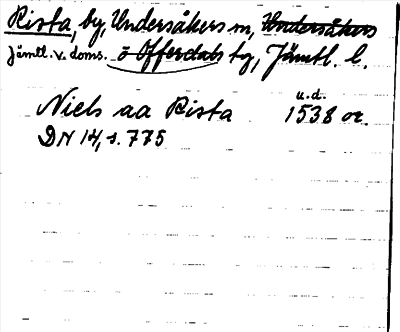 Rista, by, Undersåkers sn, Undersåkers
Jämtl. v. doms. o Offerdals tg, Jämtl. l.
u.d.
Niels aa Rista 1538 or.
DN 14, s. 775